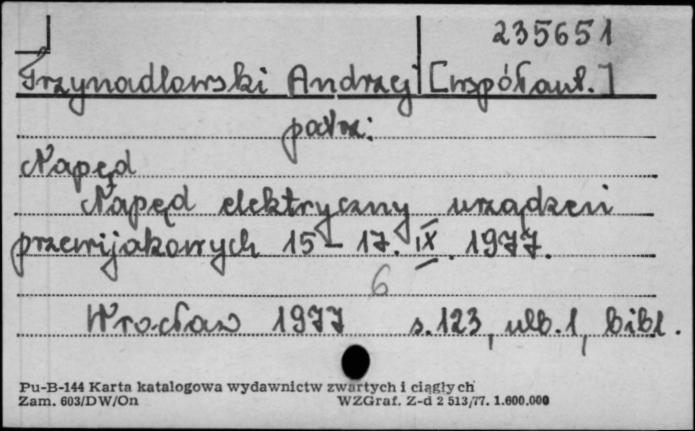 235651
Trzynadlowski Andrzej [współaut.]
patrz:
Napęd
Napęd elektryczny urządzeń
przewijakowych 15-17. IX. 1977.
6
Wrocław 1977 s. 123, ulb. 1, bibl.
Pu-B-144 Karta katalogowa wydawnictw zwartych i ciągłych
Zam. 603/DW/On WZGraf. Z-d 2 513/77. 1.600.000